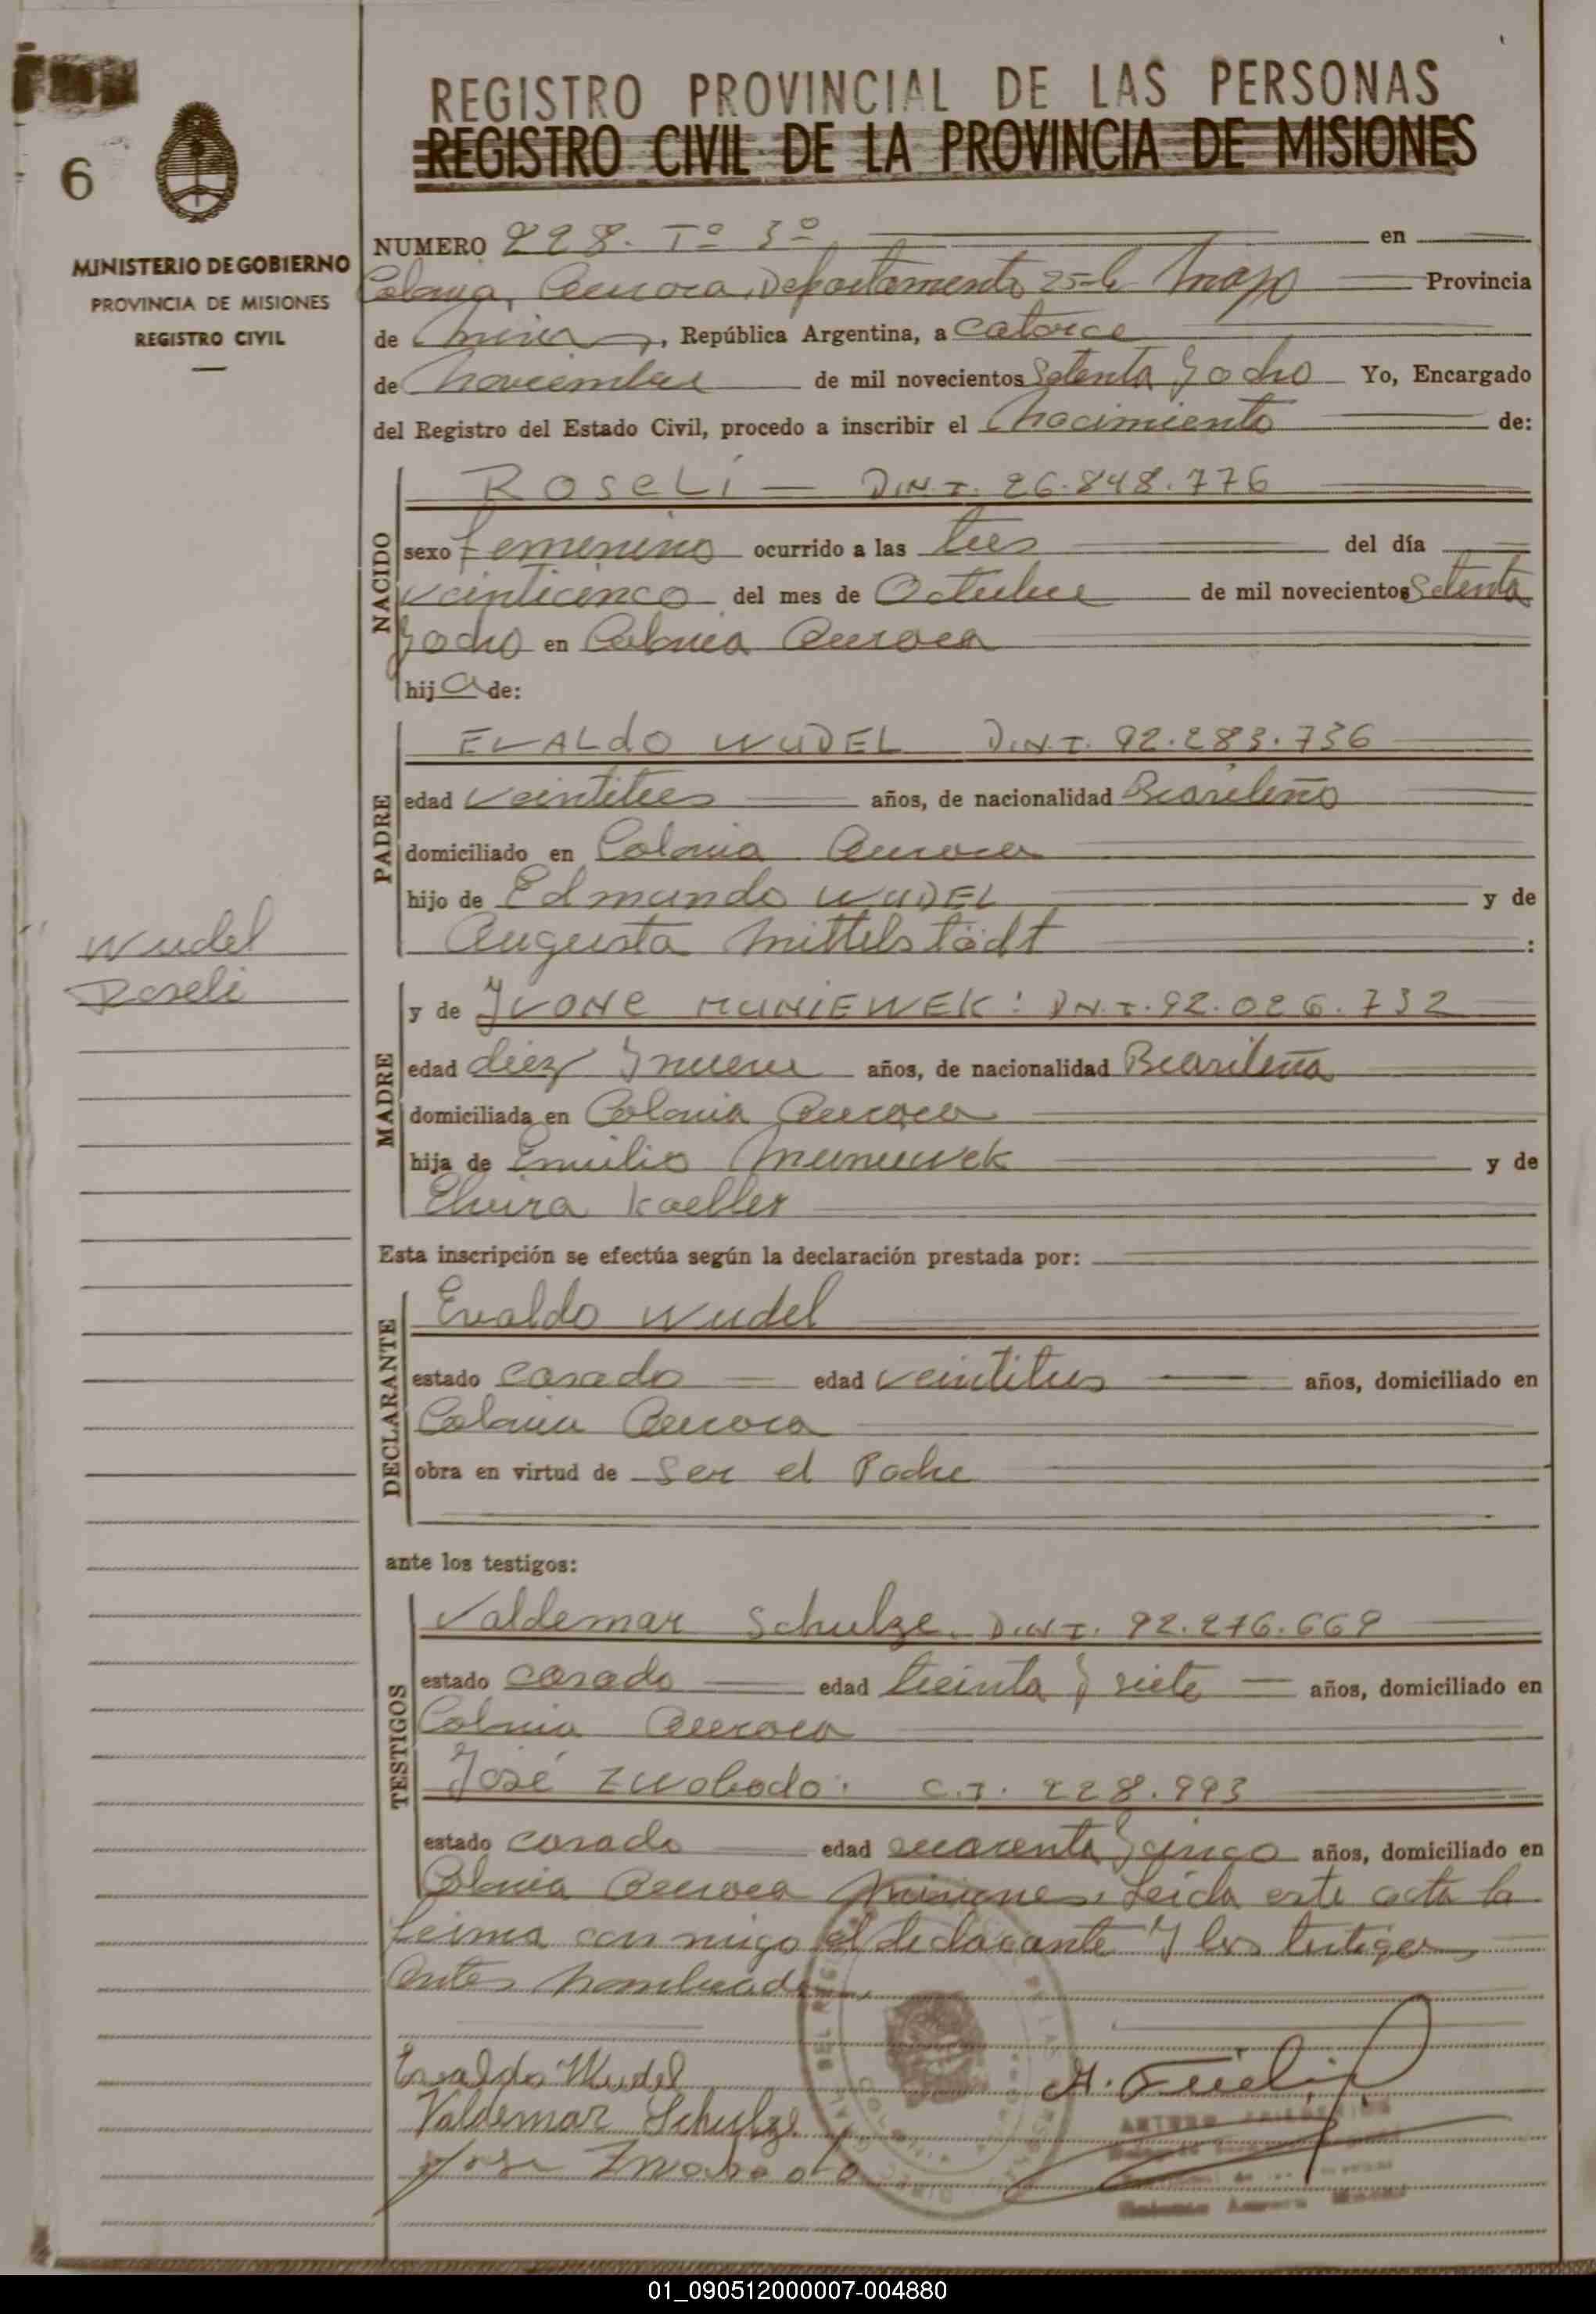 REGISTRO PROVINCIAL DE LAS PERSONAS
REGISTRO CIVIL DE LA PROVINCIA DE MISIONES
6
MINISTERIO DE GOBIERNO
PROVINCIA DE MISIONES
REGISTRO CIVIL
NUMERO 228. Tº 3º en
Colonia Aurora, Departamento 25 de Mayo Provincia
de Misiones, República Argentina, a catorce
de noviembre de mil novecientos setenta y ocho Yo, Encargado
del Registro del Estado Civil, procedo a inscribir el nacimiento de:
NACIDO
ROSELI — D.N.I. 26.848.776
sexo femenino ocurrido a las tres del día
veinticinco del mes de Octubre de mil novecientos setenta
y ocho en Colonia Aurora
hija de:
PADRE
EVALdO WUDEL D.N.I. 92.283.736
edad veintitres años, de nacionalidad Brasileño
domiciliado en Colonia Aurora
hijo de Edmundo WUDEL y de
Augusta Mittelstädt :
Wudel
Roseli
MADRE
y de IVONE MUNIEWEK: D.N.I. 92.026.732
edad diez y nueve años, de nacionalidad Brasileña
domiciliada en Colonia Aurora
hija de Emilio Muniewek y de
Elvira Koeller
Esta inscripción se efectúa según la declaración prestada por:
DECLARANTE
Evaldo Wudel
estado casado edad veintitres años, domiciliado en
Colonia Aurora
obra en virtud de ser el Padre
ante los testigos:
TESTIGOS
Valdemar Schulze. D.N.I. 92.276.669
estado casado edad treinta y siete años, domiciliado en
Colonia Aurora
José Zwobodo: C.I. 228.993
estado casado edad cuarenta y cinco años, domiciliado en
Colonia Aurora Misiones. Leida este acta la
firma con migo el declarante y los testigos
antes nombrados
Evaldo Wudel
Valdemar Schulze
Jose
01_090512000007-004880